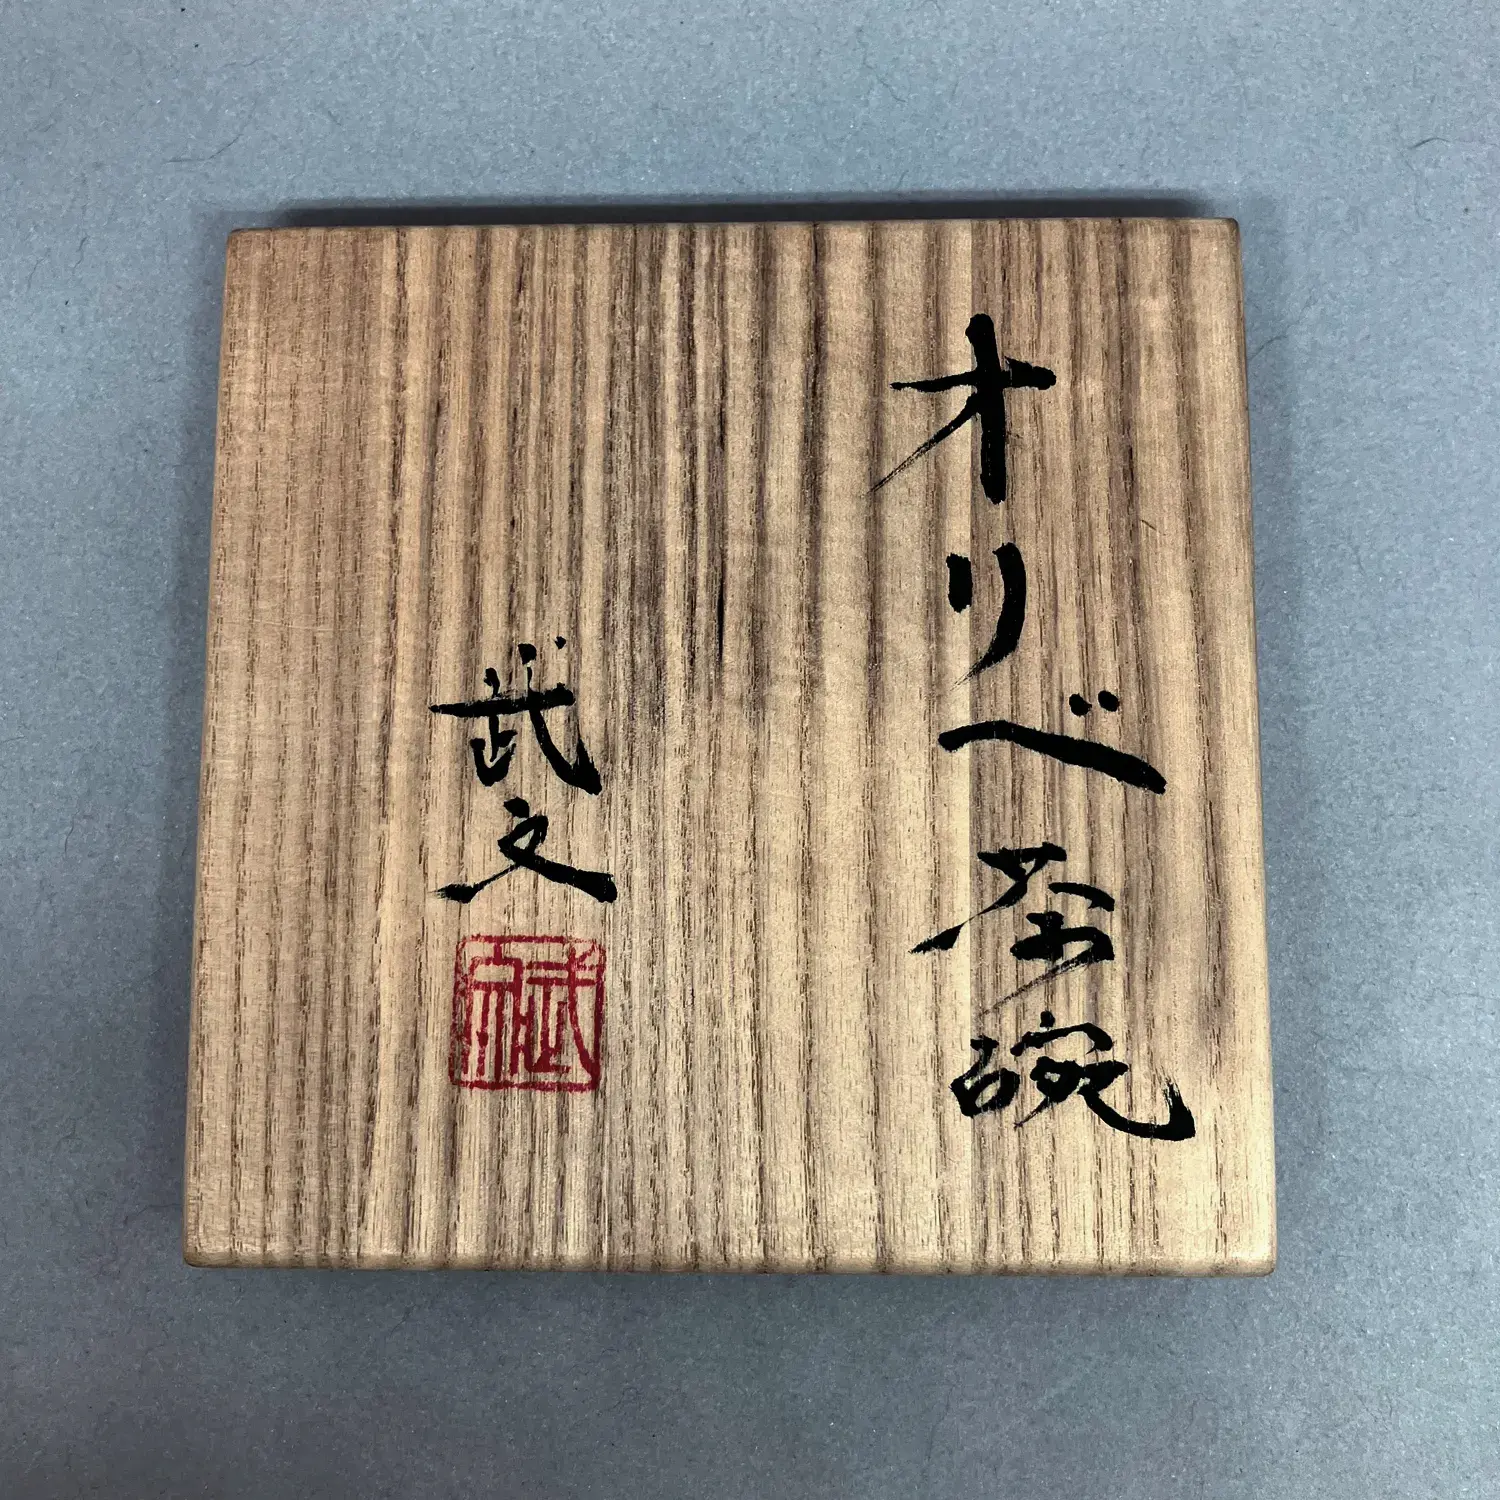 オリベ茶碗
武文